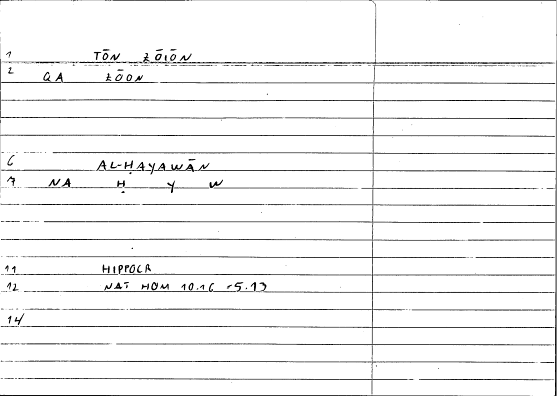 1 TŌN ZŌIŌN
2 QA ZŌON
6 AL-ḤAYAWĀN
7 NA Ḥ Y W
11 HIPPOCR
12 NAT HOM 10.16 -5.13
14